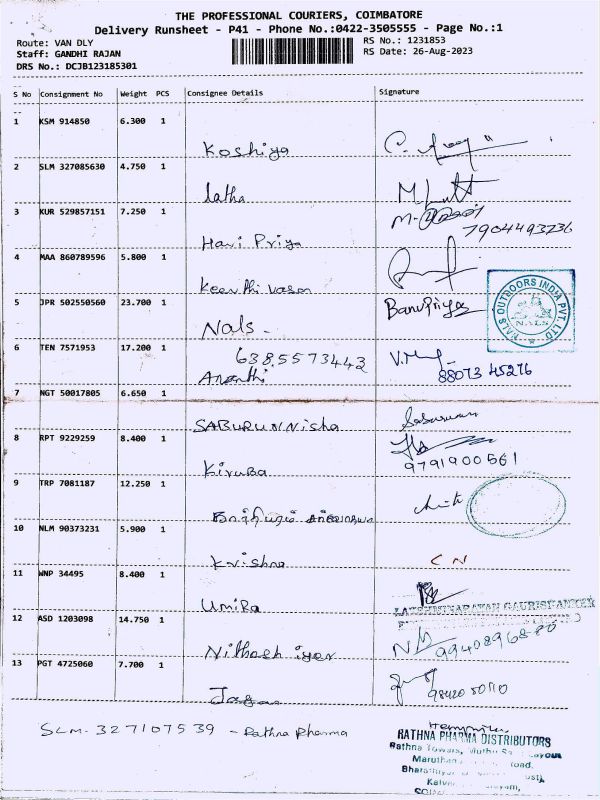 THE PROFESSIONAL COURIERS, COIMBATORE
Delivery Runsheet - P41 - Phone No.:0422-3505555 - Page No.:1
Route: VAN DLY RS No.: 1231853
Staff: GANDHI RAJAN RS Date: 26-Aug-2023
DRS No.: DCJB123185301
S No Consignment No Weight PCS Consignee Details Signature
1 KSM 914850 6.300 1
Koshiya
2 SLM 327085630 4.750 1
latha
3 KUR 529857151 7.250 1
7904493236
Hari Priya
4 MAA 860789596 5.800 1
Keerthi vasan
5 JPR 502550560 23.700 1 Banupriya
NALS OUTDOORS INDIA PVT. LTD
NALS
Nals -
6 TEN 7571953 17.200 1
6385573443
Ananthi 88073 45276
7 NGT 50017805 6.650 1
SABURUNNisha
8 RPT 9229259 8.400 1
Kiruba 9791900561
9 TRP 7081187 12.250 1
10 NLM 90373231 5.900 1
Krishna C N
11 WNP 34495 8.400 1
Umira
LAKSHMINARAYAN GAURISHANKER
12 ASD 1203098 14.750 1
Nithesh iyer 9940896880
13 PGT 4725060 7.700 1
Jagan
SLM-327107539 - Rathna Pharma
RATHNA PHARMA DISTRIBUTORS
Rathna Towers,
Road,